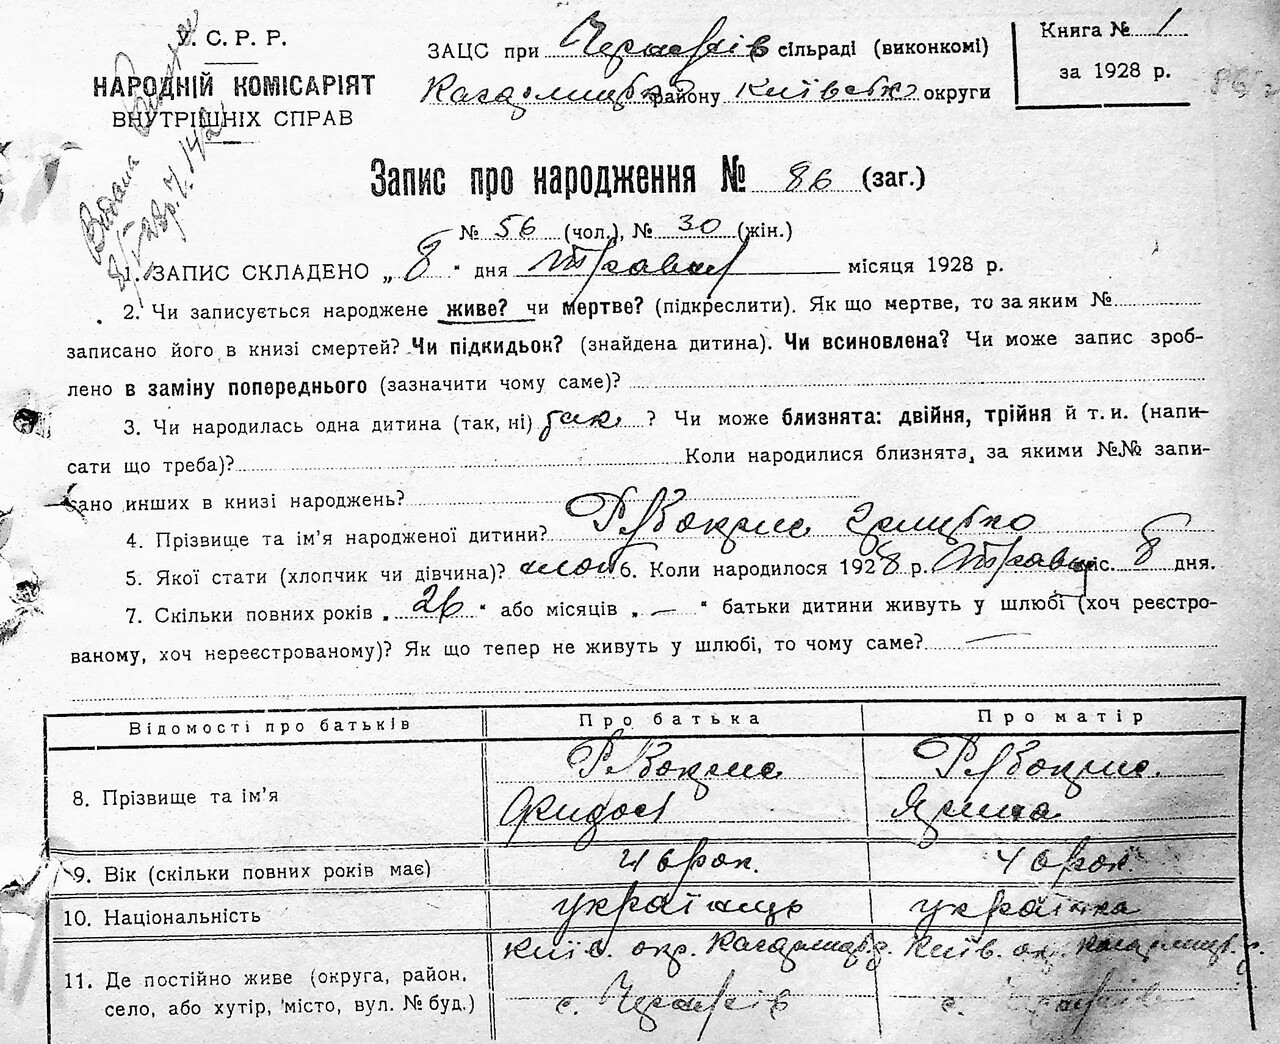 У. С. Р. Р.
НАРОДНІЙ КОМІСАРІЯТ
ВНУТРІШНІХ СПРАВ
Видана
ЗАЦС при сільраді (виконкомі)
Кагарлицьк району Київськ округи
Книга № 1
за 1928 р.
Запис про народження № 86 (заг.)
№ 56 (чол.), № 30 (жін.)
1. ЗАПИС СКЛАДЕНО „ 8 “ дня Травня місяця 1928 р.
2. Чи записується народжене живе? чи мертве? (підкреслити). Як що мертве, то за яким №
записано його в книзі смертей? Чи підкидьок? (знайдена дитина). Чи всиновлена? Чи може запис зроб-
лено в заміну попереднього (зазначити чому саме)?
3. Чи народилась одна дитина (так, ні) так ? Чи може близнята: двійня, трійня й т. и. (напи-
сати що треба)? Коли народилися близнята, за якими №№ запи-
сано инших в книзі народжень?
4. Прізвище та ім’я народженої дитини? Грицько
5. Якої стати (хлопчик чи дівчина)? 6. Коли народилося 1928 р. Травня міс. 8 дня.
7. Скільки повних років „ 26 “ або місяців „ — “ батьки дитини живуть у шлюбі (хоч реєстро-
ваному, хоч нереєстрованому)? Як що тепер не живуть у шлюбі, то чому саме? —
Відомості про батьків Про батька Про матір
8. Прізвище та ім’я
Федось Ярина
9. Вік (скільки повних років має) 46 рок. 46 рок.
10. Національність українець українка
11. Де постійно живе (округа, район,
село, або хутір, місто, вул. № буд.)
Київ. окр. Кагарлицьк. р. Київ. окр. Кагарлицьк. р.
с. с.